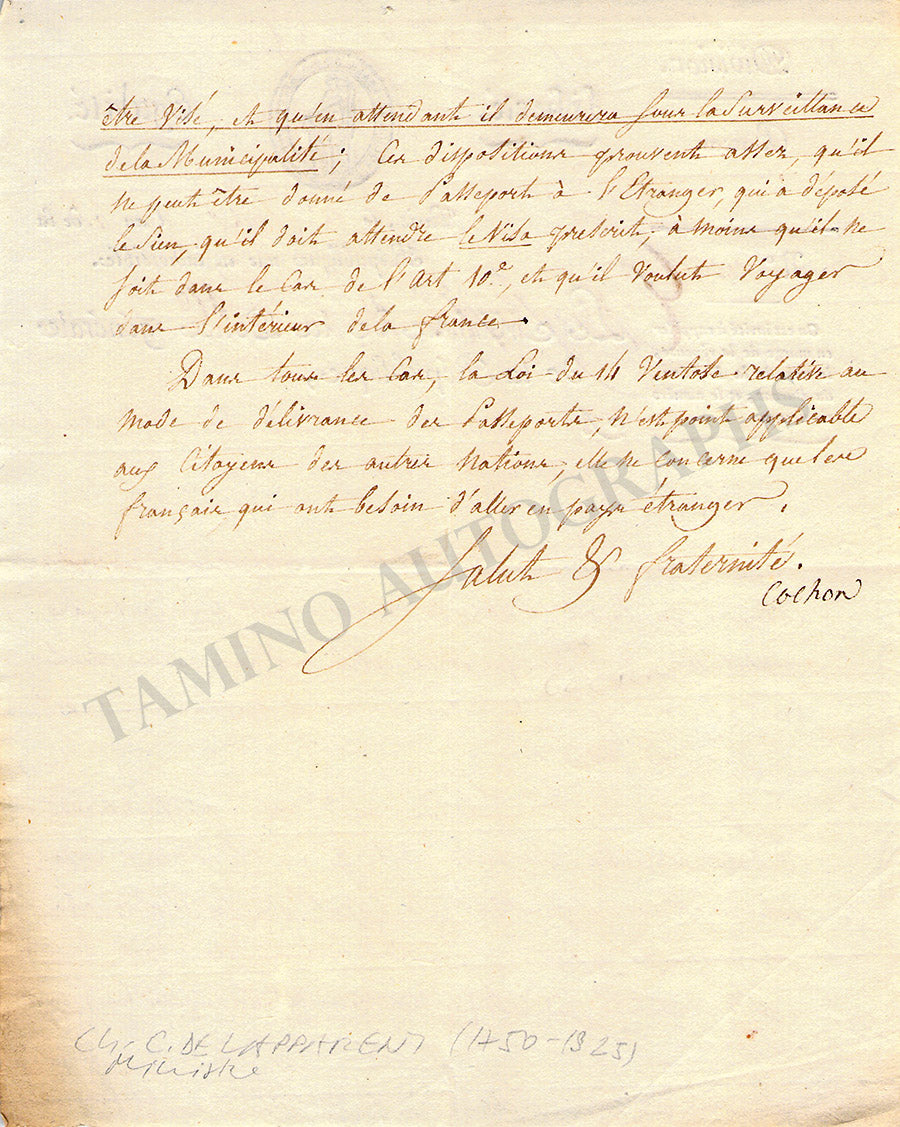 être Visé, et qu'en attendant il demeurera sous la Surveillance
de la Municipalité; Ces dispositions prouvent assez, qu'il
ne peut être donné de Passeport à l'Etranger, qui a déposé
le Sien, qu'il doit attendre le Visa prescrit, à moins qu'il ne
soit dans le Cas de l'Art 10.e, et qu'il Voulut Voyager
dans l'intérieur de la france.
Dans tous les Cas, la Loi du 14 Ventose relative au
mode de délivrance des Passeports, n'est point applicable
aux Citoyens des autres Nations, elle ne concerne que les
français qui ont besoin d'aller en pays étranger.
Salut & fraternité.
Cochon
TAMINO AUTOGRAPHS
Ch. C. DE LAPPARENT (1750-1825)
Ministre